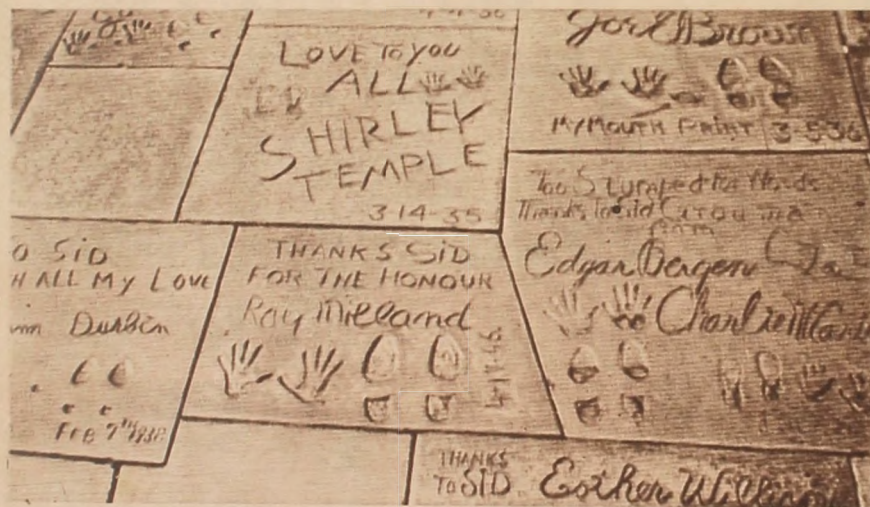 LOVE TO YOU
ALL
SHIRLEY
TEMPLE
3-14-35
Joe E Brown
MY MOUTH PRINT 3-5-36
Too Stumped for Words
Thanks to Sid
Edgar Bergen
Charlie McCar
O SID
H ALL MY LOVE
Durbin
FEB 7TH 1938
THANKS SID
FOR THE HONOUR
Ray Milland
THANKS
TO SID
Esther William